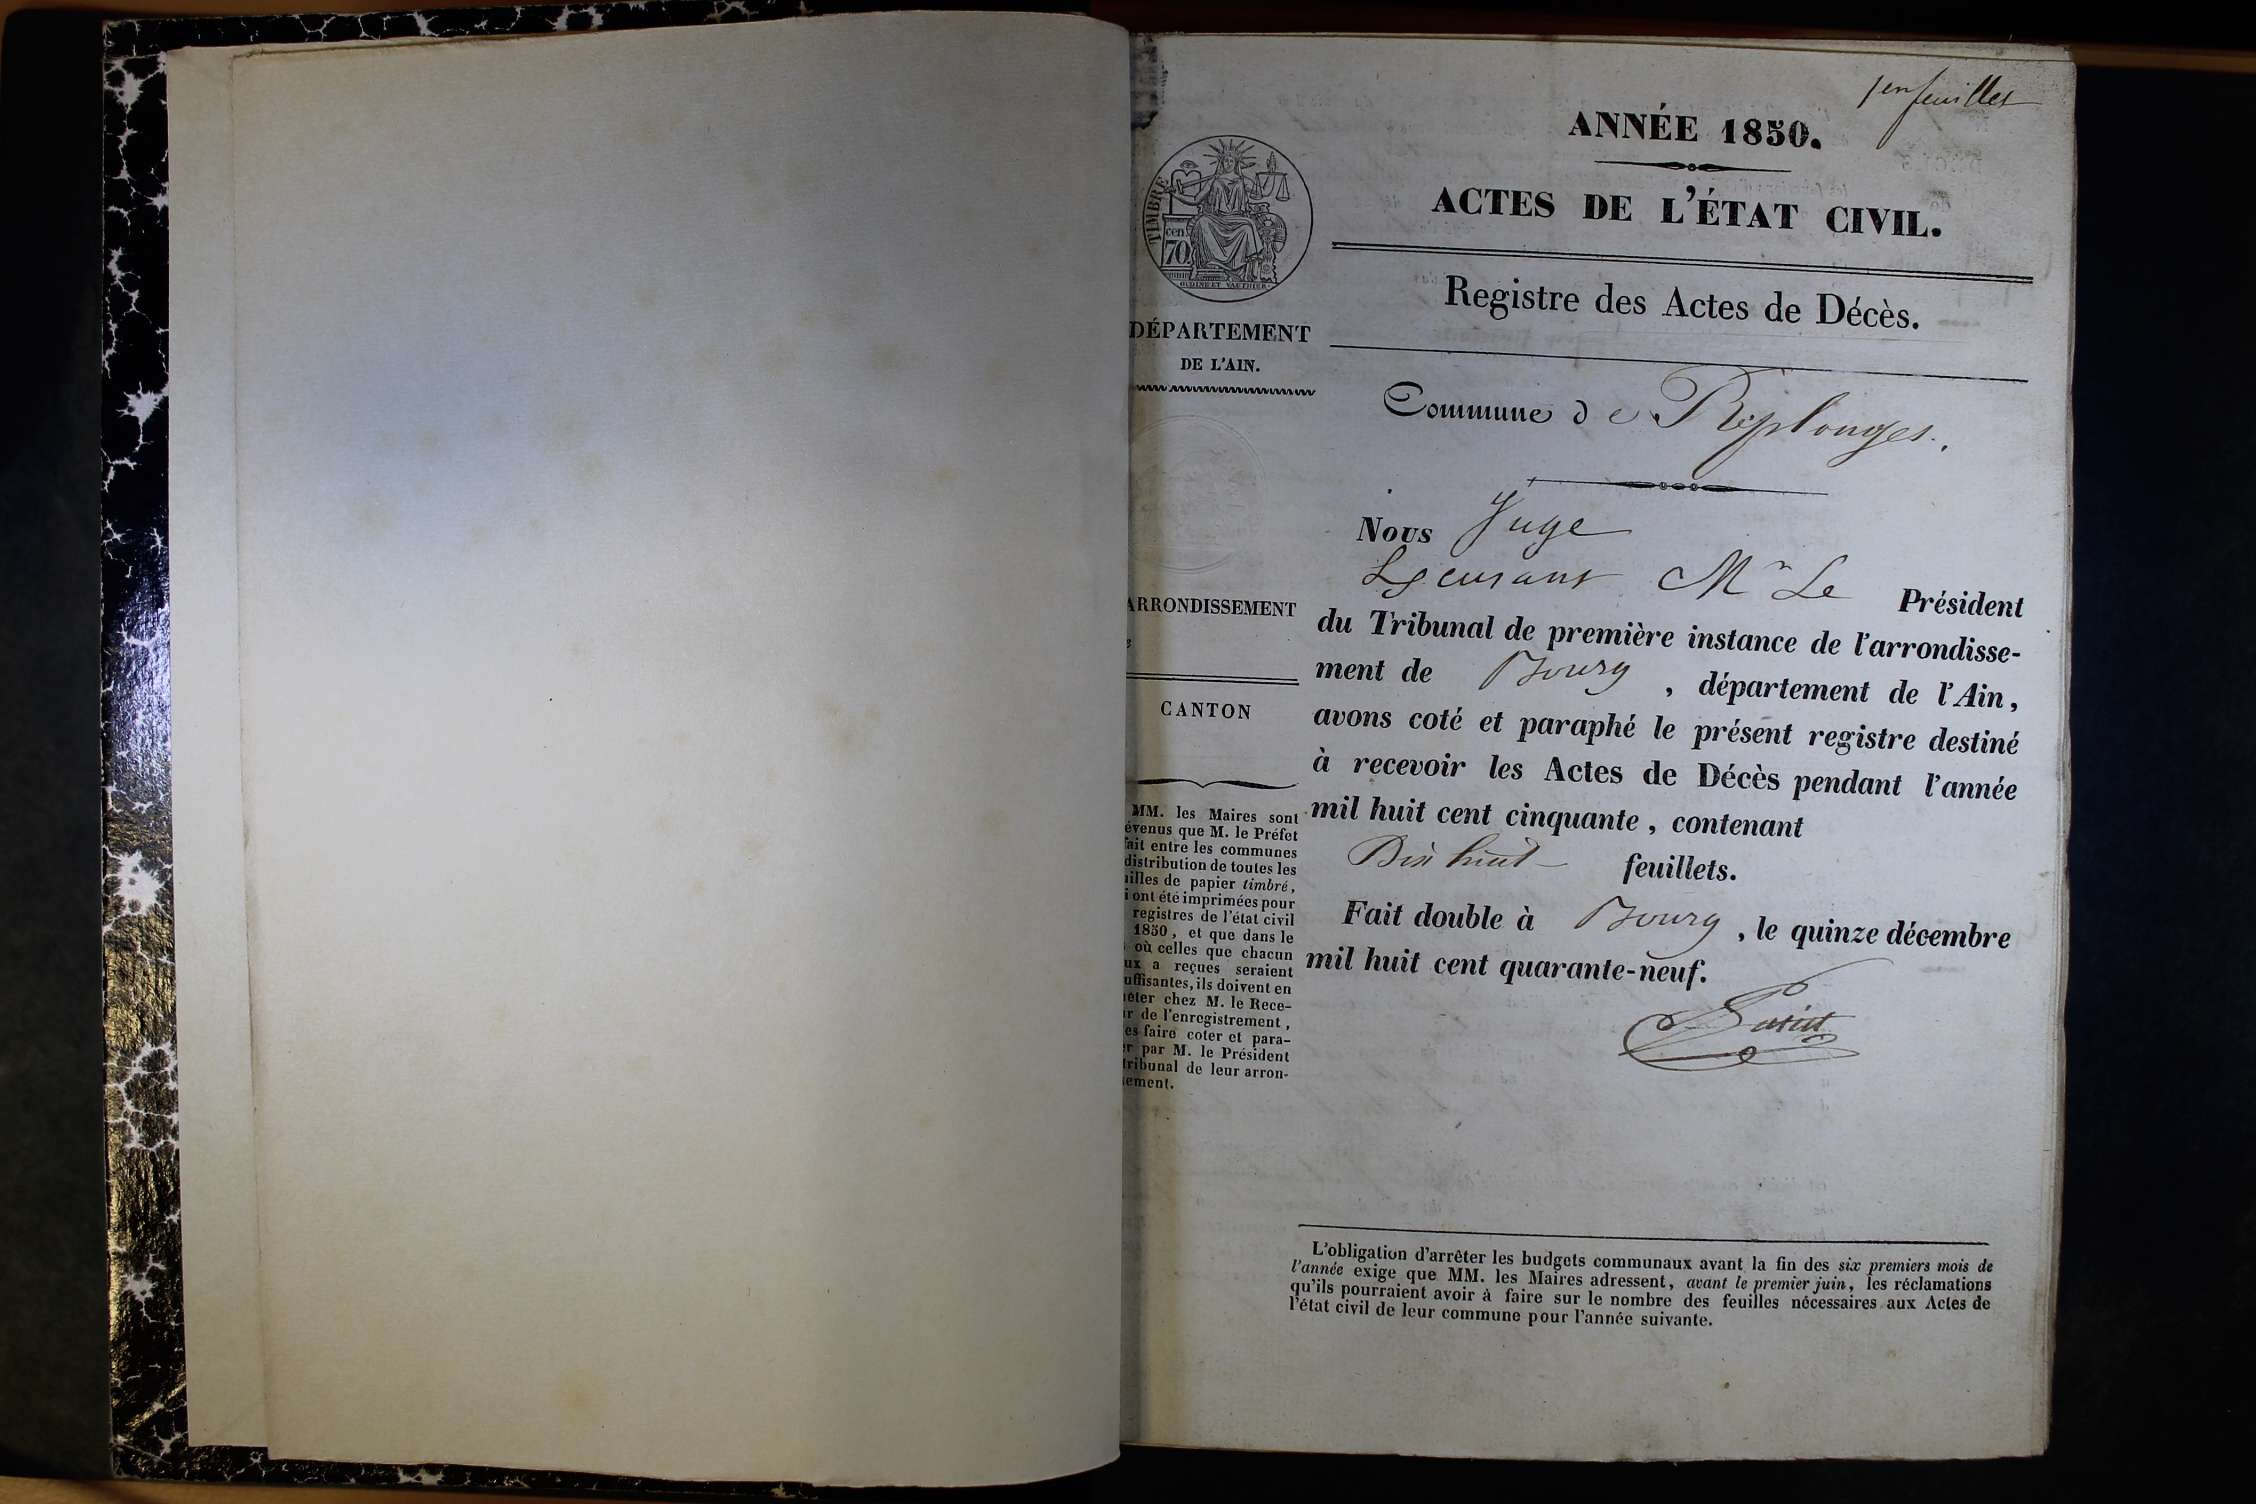 1er feuillet
ANNÉE 1850.
ACTES DE L'ÉTAT CIVIL.
Registre des Actes de Décès.
TIMBRE
cen.
70.
OUDINET VAUTHIER.
DÉPARTEMENT
DE L'AIN.
ARRONDISSEMENT
CANTON
MM. les Maires sont
évenus que M. le Préfet
fait entre les communes
distribution de toutes les
uilles de papier timbré,
i ont été imprimées pour
registres de l'état civil
1850, et que dans le
où celles que chacun
ux a reçues seraient
uffisantes, ils doivent en
eter chez M. le Rece-
ur de l'enregistrement,
es faire coter et para-
er par M. le Président
tribunal de leur arron-
sement.
Commune de Replonges.
Nous Juge
Mr Le Président
du Tribunal de première instance de l'arrondisse-
ment de Bourg, département de l'Ain,
avons coté et paraphé le présent registre destiné
à recevoir les Actes de Décès pendant l'année
mil huit cent cinquante, contenant
Dix huit feuillets.
Fait double à Bourg, le quinze décembre
mil huit cent quarante-neuf.
L'obligation d'arrêter les budgets communaux avant la fin des six premiers mois de
l'année exige que MM. les Maires adressent, avant le premier juin, les réclamations
qu'ils pourraient avoir à faire sur le nombre des feuilles nécessaires aux Actes de
l'état civil de leur commune pour l'année suivante.